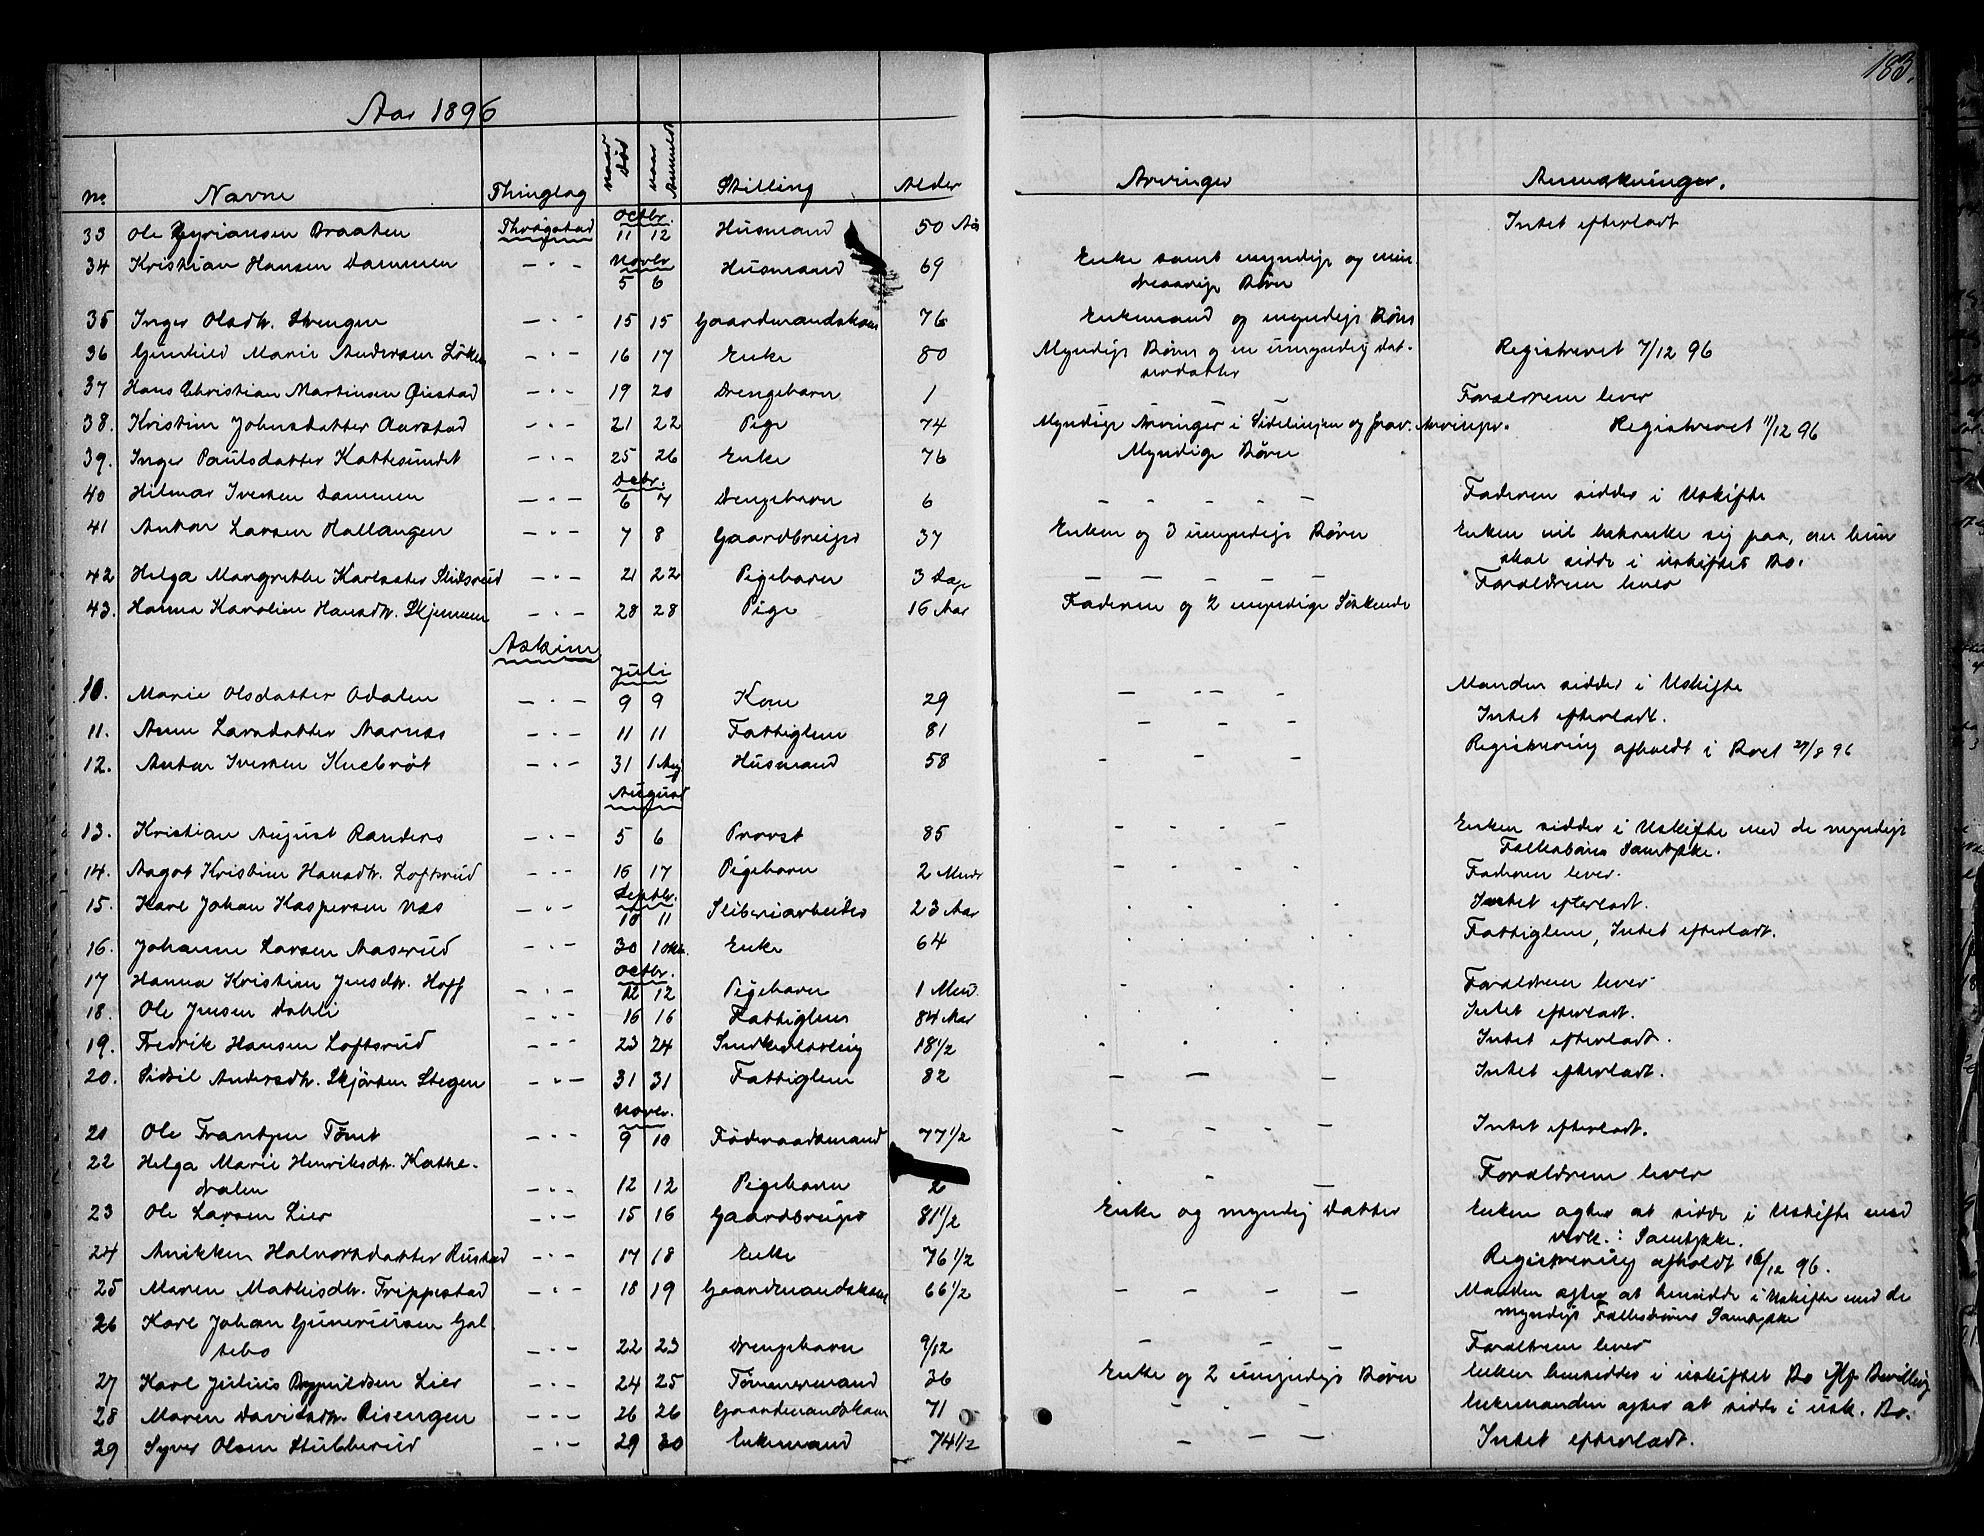 183.
Aar 1896
No. Navne Thinglag naar død naar Anmeldt Stilling Alder Arvinger Anmærkninger.
Octbr.
33 Ole Braaten Thrøgstad 11 12 Husmand 50 Aar Intet efterladt
Novbr.
34 Kristian Hansen Dammen - " - 5 6 Husmand 69 Enke samt myndige og min-
dreaarige Børn
35 Inger Olsdtr. Strengen - " - 15 15 Gaardmandskone 76 Enkemand og myndige Børn
36 Gunhild Marie Andersen Løken - " - 16 17 Enke 80 Myndige Børn og en umyndig Dat-
terdatter Registreret 7/12 96
37 Hans Christian Martinsen Øiestad - " - 19 20 Drengebarn 1 Forældrene lever
38. Kristine Johnsdatter Aarstad - " - 21 22 Pige 74 Myndige Arvinger i Sidelinjen og Arvinger. Registreret 11/12 96
39. Inger Paulsdatter Kattesundet - " - 25 26 Enke 76 Myndige Børn
Decbr.
40 Hilmar Iversen Dammen - " - 6 7 Drengebarn 6 - - - - - Faderen sidder i Uskifte
41 Anton Larsen Hallangen - " - 7 8 Gaardbruger 37 Enken og 3 umyndige Børn Enken vil betænke sig paa, om hun
skal sidde i uskiftet Bo.
42 Helga Margrethe Karlsdatter - " - 21 22 Pigebarn 3 Dage - - - - - Forældrene lever
43. Hanna Karoline Hansdtr. Skjennum - " - 28 28 Pige 16 Aar Faderen og 2 myndige Søskende
Askim
Juli
10. Marie Olsdatter Odalen - " - 9 9 Kone 29 - - - - Manden sidder i Uskifte
11. Anne Larsdatter Narnæs - " - 11 11 Fattiglem 81 - - - Intet efterladt.
12. Anton Iversen - " - 31 1 Aug Husmand 58 - - - Registrering afholdt i Boet 27/8 96
August
13. Kristian August Randers - " - 5 6 Provst 85 - - - - Enken sidder i Uskifte med de myndige
Fællesbørns Samtykke.
14. Aagot Kristine Hansdtr. Loftsrud - " - 16 17 Pigebarn 2 Mndr - - - - Faderen lever.
Septbr.
15. Karl Johan Kaspersen Næs - " - 10 11 Sliberiarbeider 23 Aar . . . . Intet efterladt.
16. Johanne Larsen Aaserud - " - 30 1 Okt. Enke 64 . . . . . Fattiglem, Intet efterladt.
Octbr.
17 Hanna Kristine Jensdtr. Hoff - " - 12 12 Pigebarn 1 Mnd. . . . . Forældrene lever
18. Ole Jensen Dahli - " - 16 16 Fattiglem 84 Aar . . . . . Intet efterladt.
19. Fredrik Hansen Loftsrud - " - 23 24 Snedkerlærling 18 1/2 . . . . Intet efterladt.
20. Sidsil Andersdtr. Skjørten Stegen - " - 31 31 Fattiglem 82 - - - - Intet efterladt.
Novbr.
21 Ole Frantzen Tømt - " - 9 10 Føderaadsmand 77 1/2 - - - - Intet efterladt.
22 Helga Marie Henriksdtr. Kathe-
dralen - " - 12 12 Pigebarn 2 - - Forældrene lever
23 Ole Larsen Lier - " - 15 16 Gaardbruger 81 1/2 Enke og myndig Datter Enken agter at sidde i Uskifte med
vedk.: Samtykke.
24 Anikken Halvorsdatter Rustad - " - 17 18 Enke 76 1/2 Registrering afholdt 16/12 96.
25 Maren Mathisdtr. Trippestad - " - 18 19 Gaardmandskone 66 1/2 - - - - Manden agter at hensidde i Uskifte med de
myndige Fællesbørns Samtykke
26 Karl Johan Guneriusen Gal-
tebo - " - 22 23 Drengebarn 9/12 - - - Forældrene lever
27 Karl Julius Lier - " - 24 25 Tømmermand 36 Enke og 2 umyndige Børn Enken hensidder i uskiftet Bo iflg. Bevilling
28 Maren Davidsdtr. Risengen - " - 26 26 Gaardmandskone 71 - - - Enkemanden agter at sidde i usk. Bo.
29 Syver Olsen Stubberud - " - 29 30 Enkemand 74 1/2 - - - Intet efterladt.